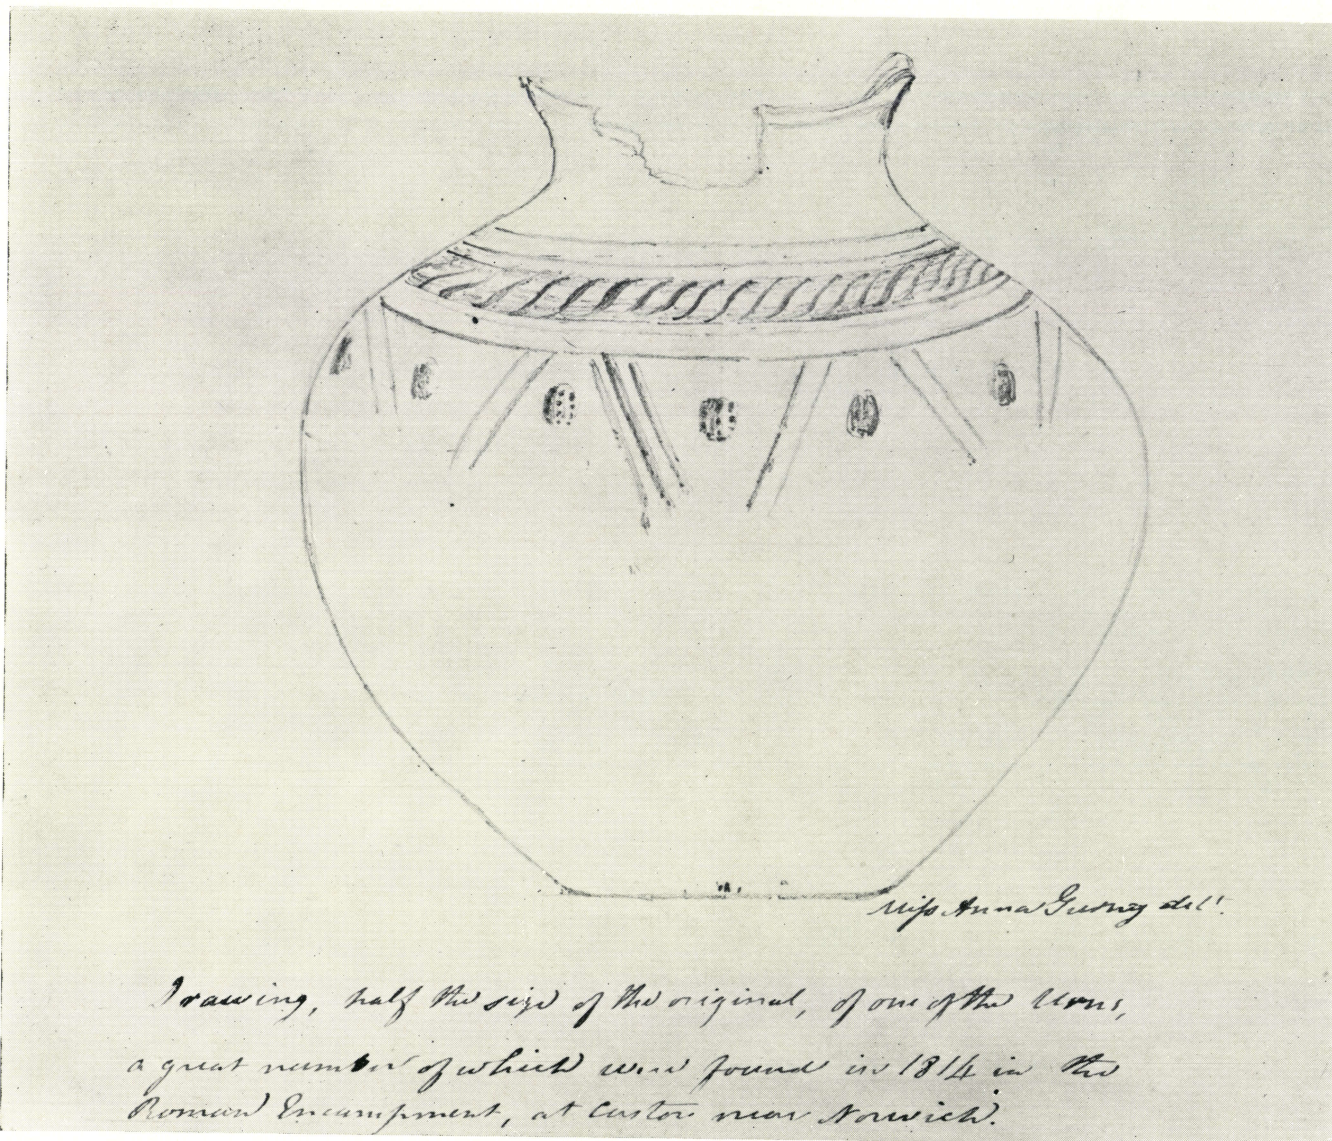 Miss Anna Gurney delt.
Drawing, half the size of the original, of one of the Urns,
a great number of which were found in 1814 in the
Roman Encampment, at Castor near Norwich.